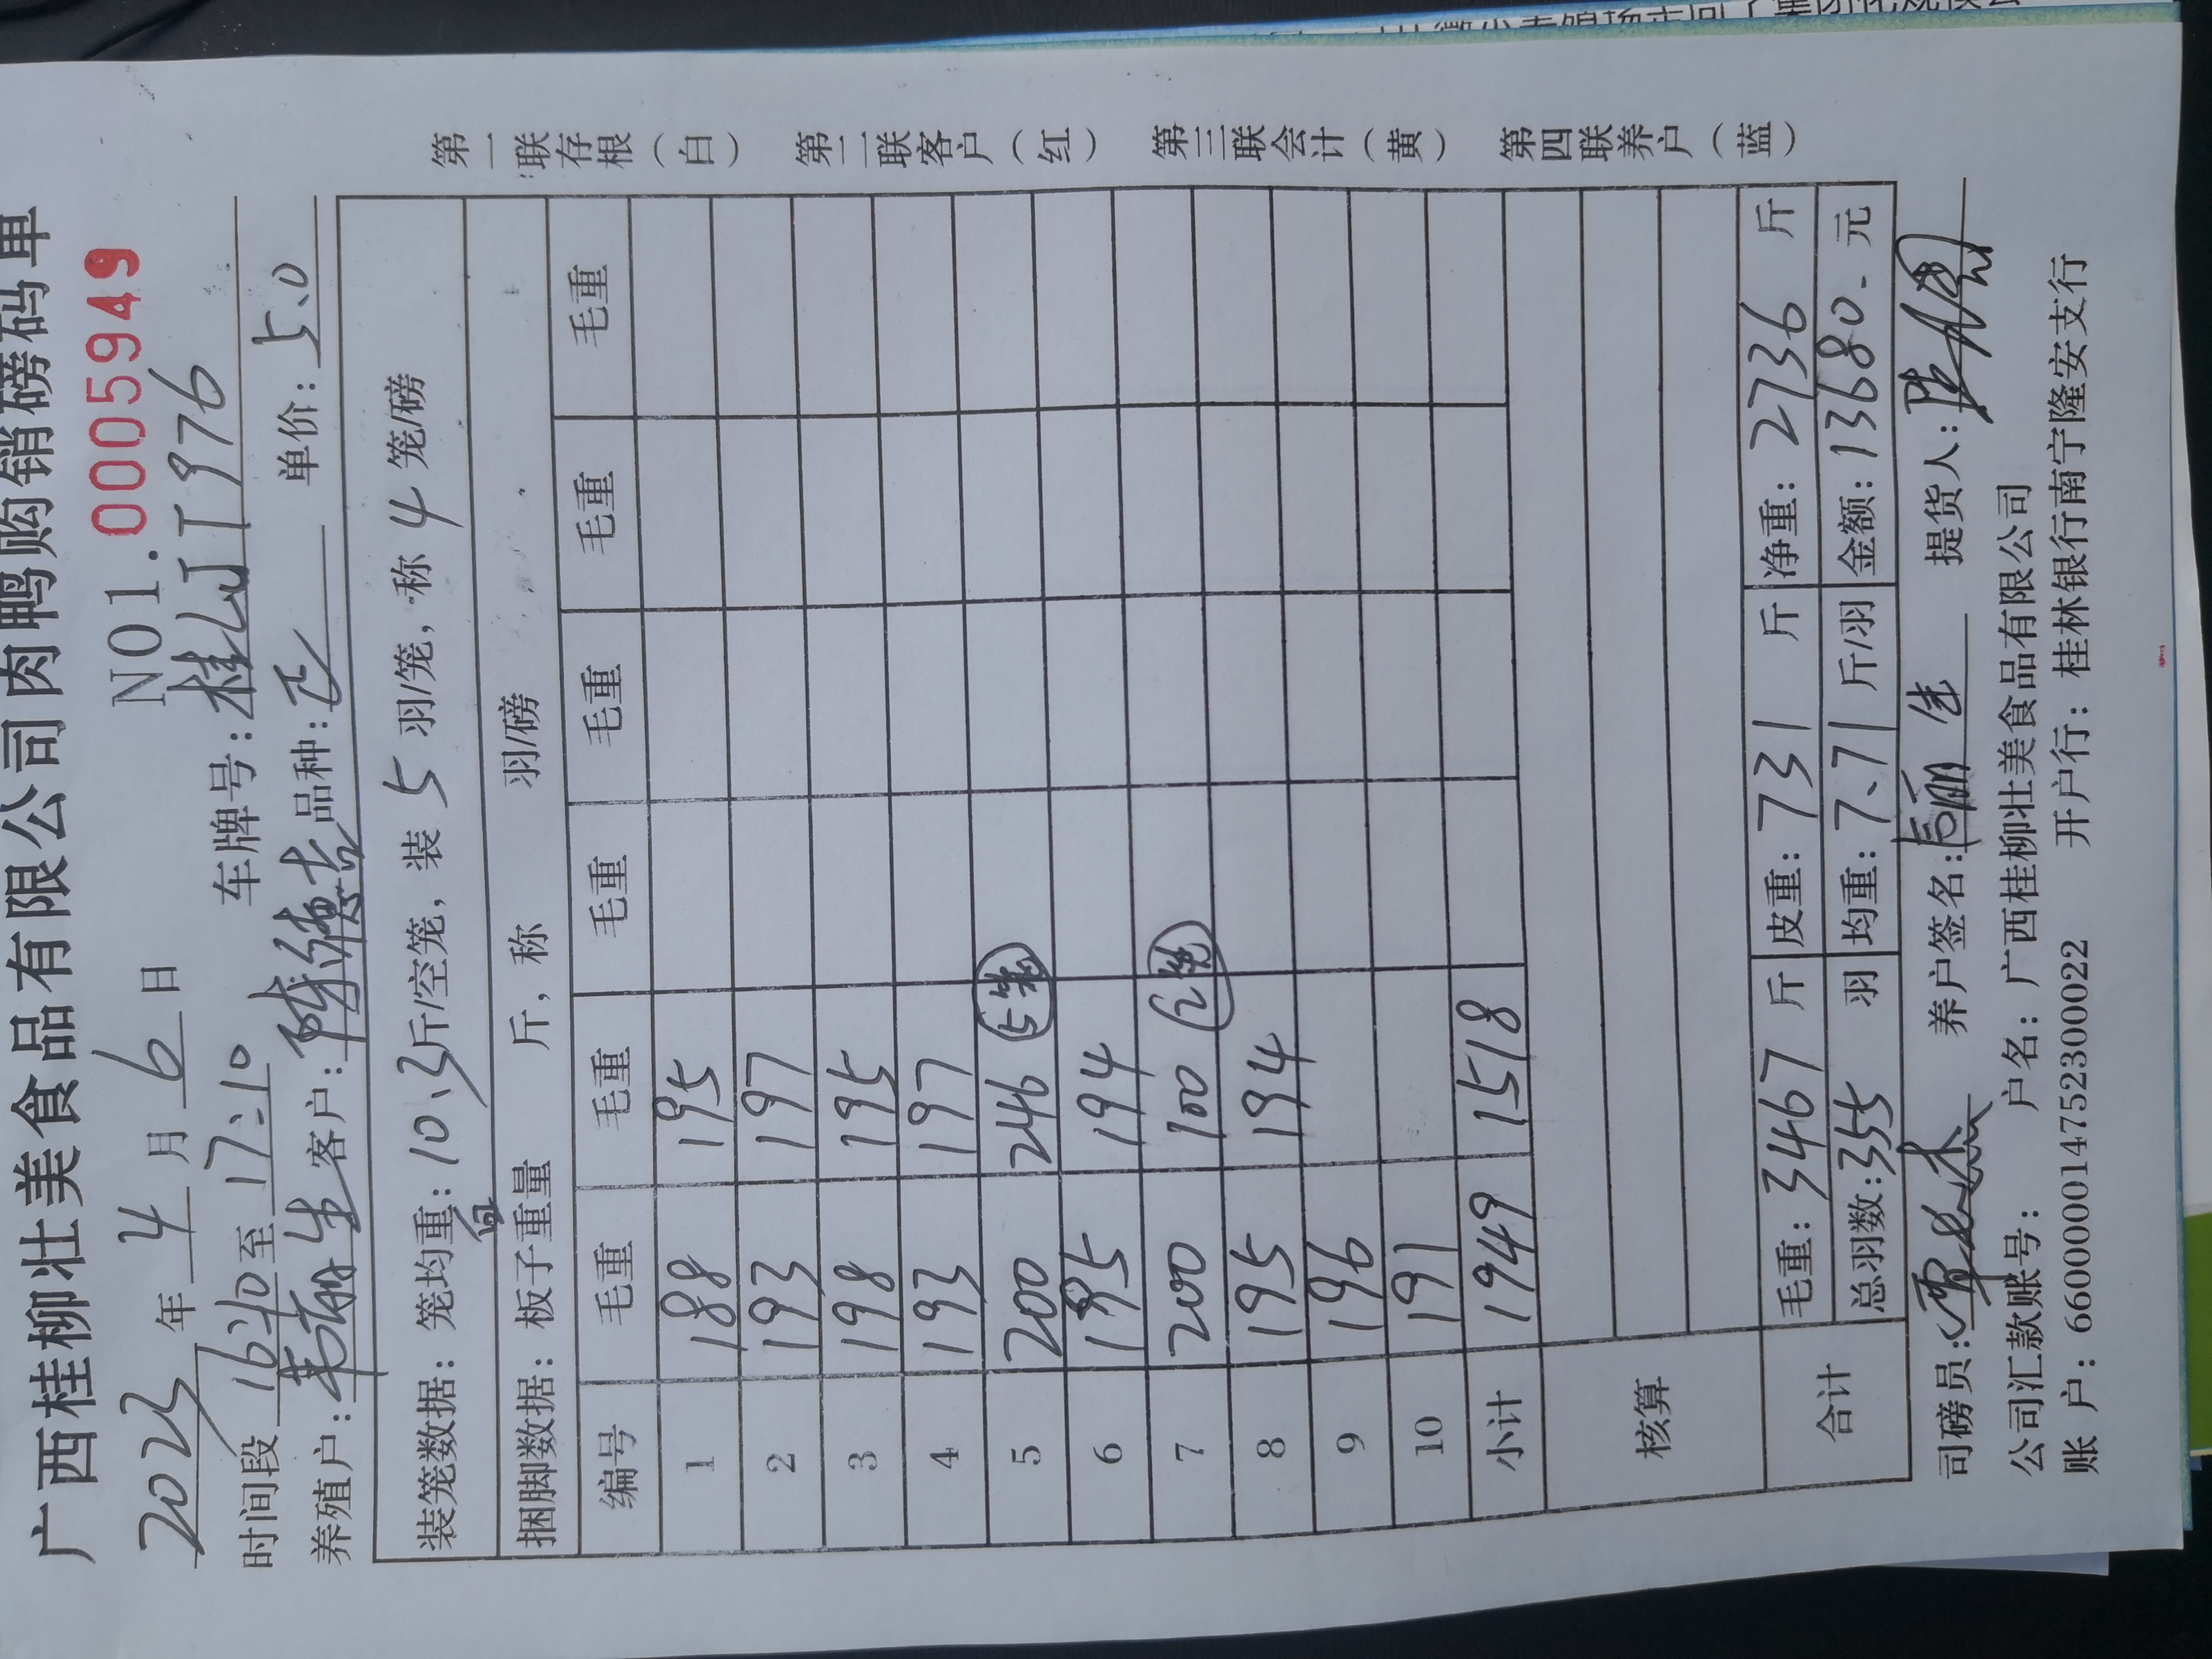 广西桂柳壮美食品有限公司肉鸭购销磅码单
2023年4月6日 NO1.0005949
时间段1640至17:10 车牌号:桂LJT976
养殖户:韦丽生 客户:陈德吉 品种: 单价:5.0
装笼数据:笼均重:10.3斤/空笼,装5羽/笼,称4笼/磅
捆脚数据:板子重量 斤,称 羽/磅
编号 毛重 毛重 毛重 毛重 毛重 毛重
1 188 195
2 193 197
3 198 195
4 193 197
5 200 246 (5笼)
6 195 194
7 200 100 (2笼)
8 195 194
9 196
10 191
小计 1949 1518
核算
合计 毛重:3467斤 皮重:731斤 净重:2736斤
总羽数:355羽 均重:7.71斤/羽 金额:13680.元
司磅员: 养户签名: 丽生 提货人:
公司汇款账号: 户名:广西桂柳壮美食品有限公司
账户:660000014752300022 开户行:桂林银行南宁隆安支行
第一联存根(白) 第二联客户(红) 第三联会计(黄) 第四联养户(蓝)